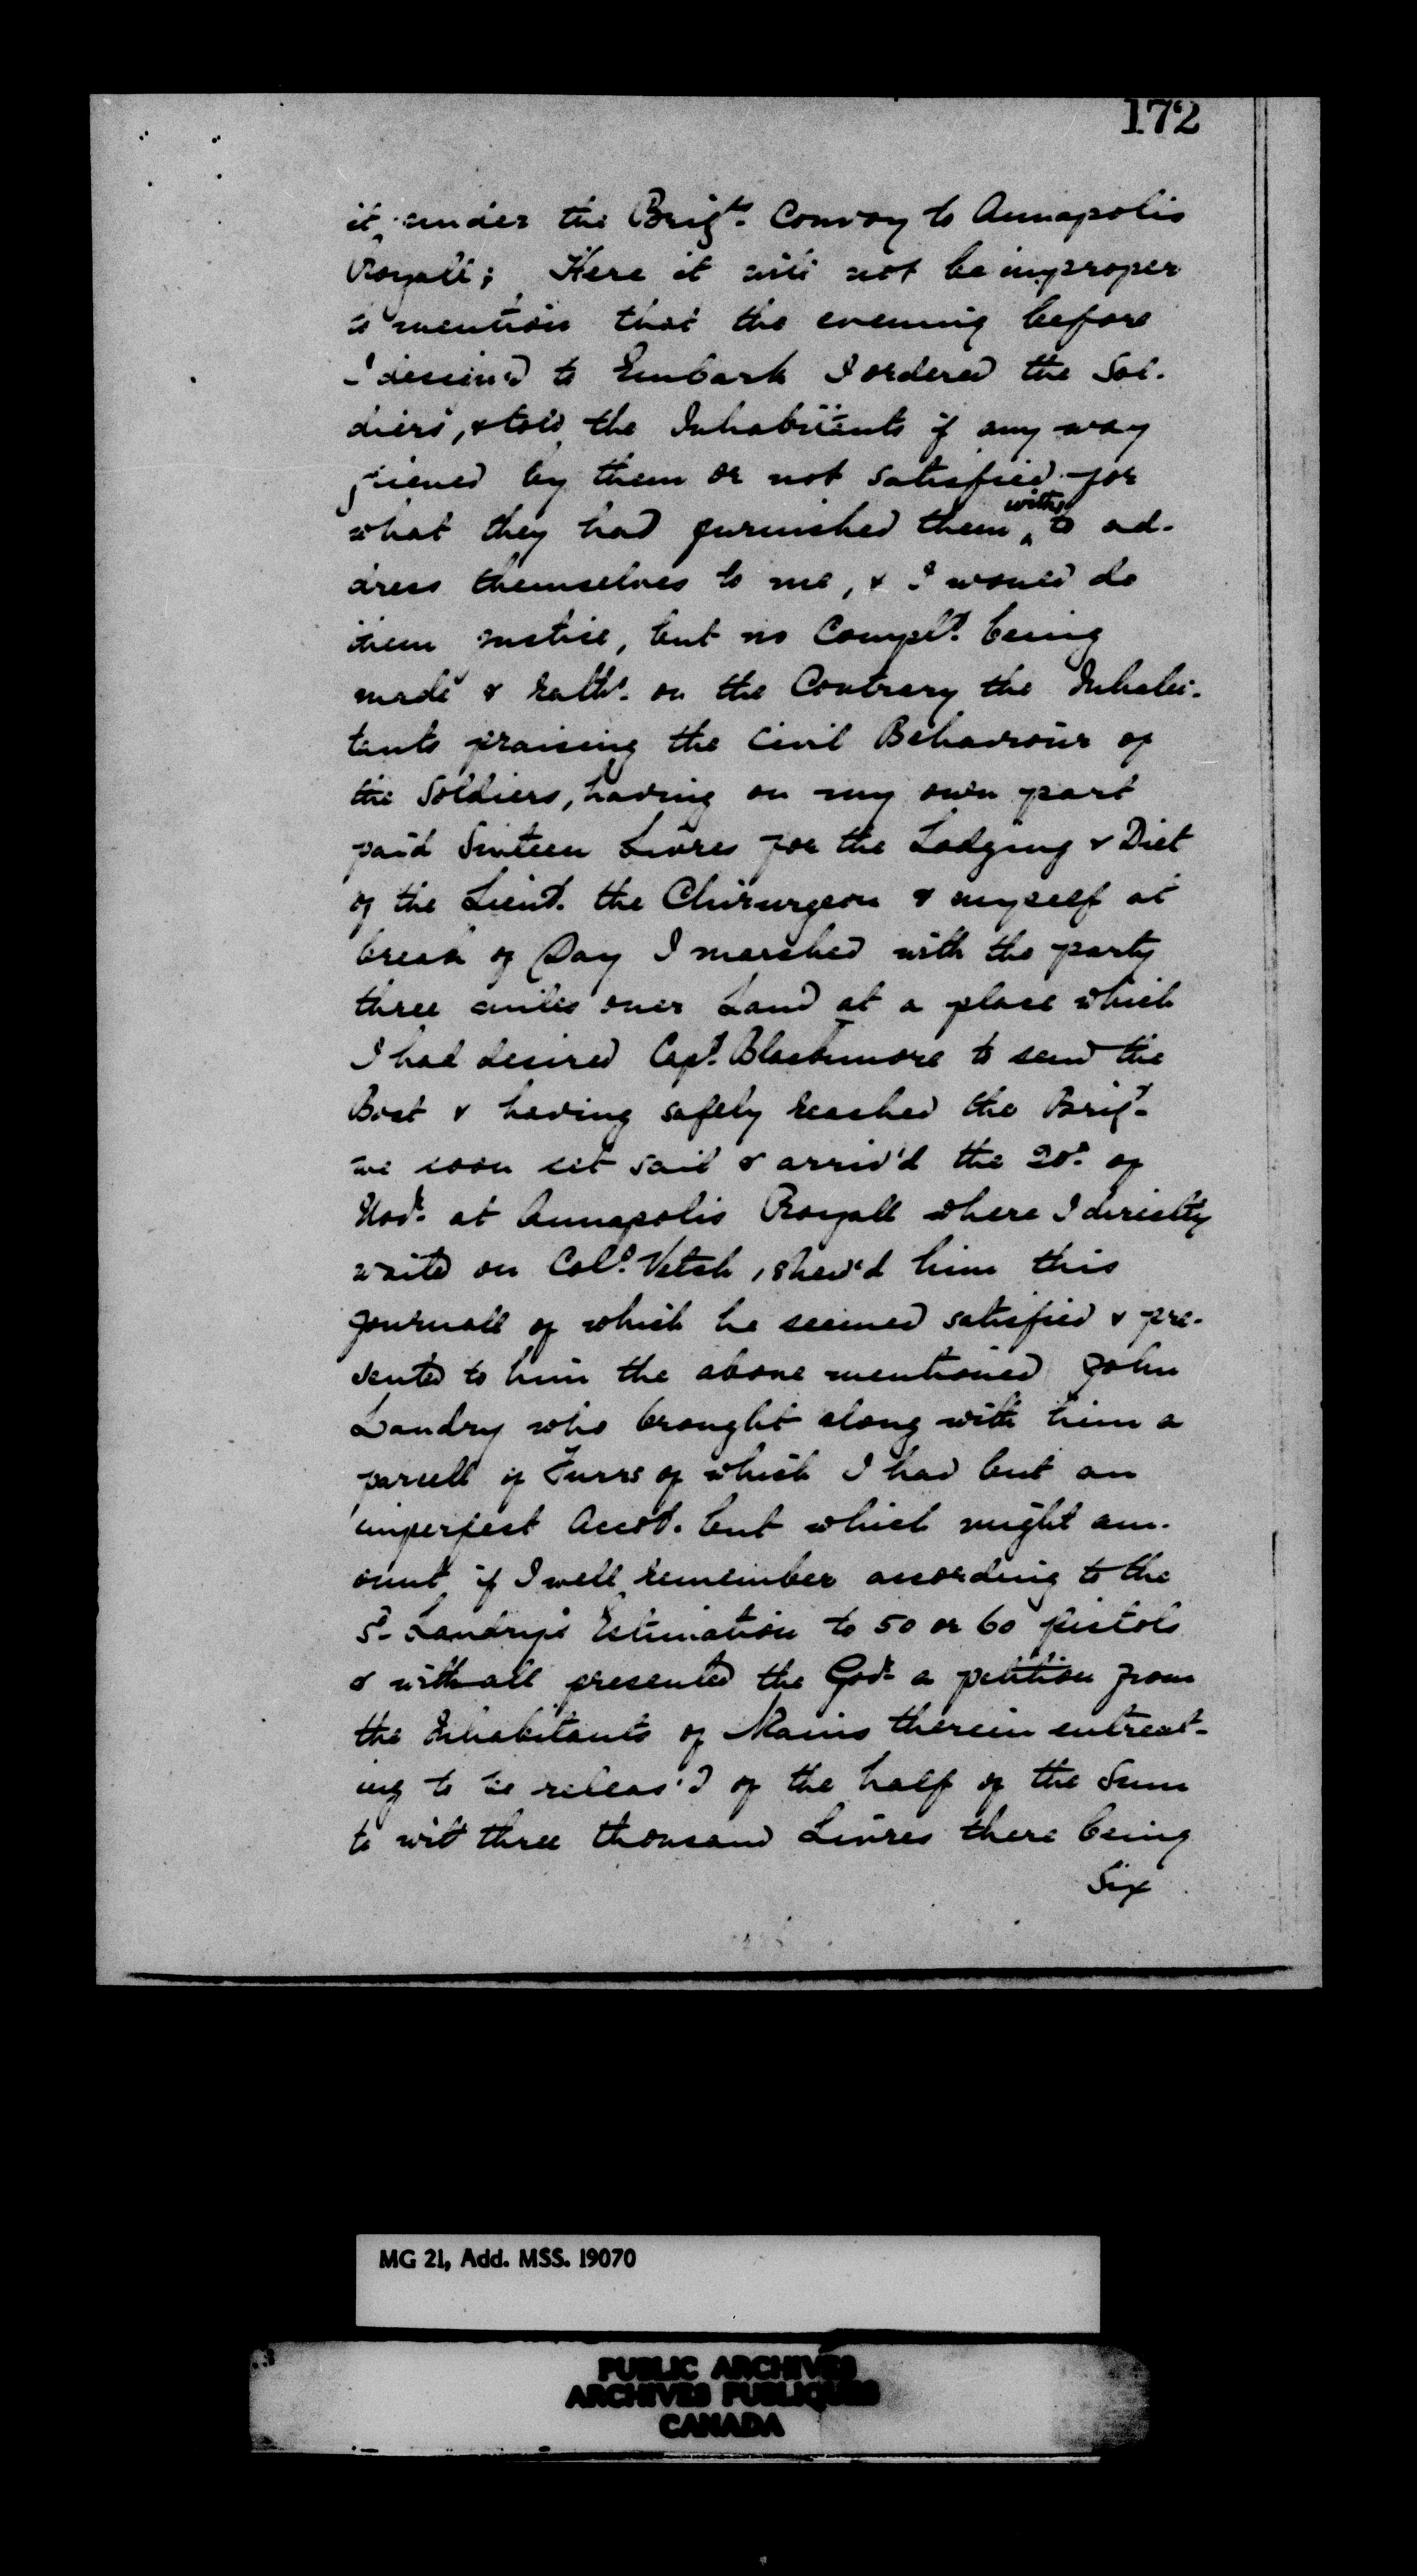 172
it, under the Brigts. Convoy to Annapolis
Royall; Here it will not be improper
to mention that the evening before
I design'd to Embark I ordered the Sol-
diers, & told the Inhabitants if any way
grieved by them or not satisfied for
what they had furnished them with, to ad-
dress themselves to me, & I would do
them justice, but no Complt. being
made & rathr. on the Contrary the Inhabi-
tants praising the Civil Behaviour of
the Soldiers, having on my own part
paid Sixteen Livres for the Lodging & Diet
of the Lieut. the Chirurgeon & myself at
break of Day I marched with the party
three miles over Land at a place which
I had desired Capt. Blackmore to send the
Boat & having safely reached the Brigt.
we soon set sail & arriv'd the 20th. of
Novr. at Annapolis Royall where I directly
waited on Collo. Vetch, shew'd him this
Journall of which he seemed satisfied & pre-
sented to him the above mentioned John
Landry who brought along with him a
parcell of Furrs of which I had but an
imperfect Accot. but which might am-
ount if I well remember according to the
sd. Landry's Estimation to 50 or 60 pistols
& withall presented the Govr. a petition from
the Inhabitants of Manis therein entreat-
ing to be releas'd of the half of the Sum
to wit three thousand Livres there being
Six
MG 21, Add. MSS. 19070
PUBLIC ARCHIVES
ARCHIVES PUBLIQUES
CANADA